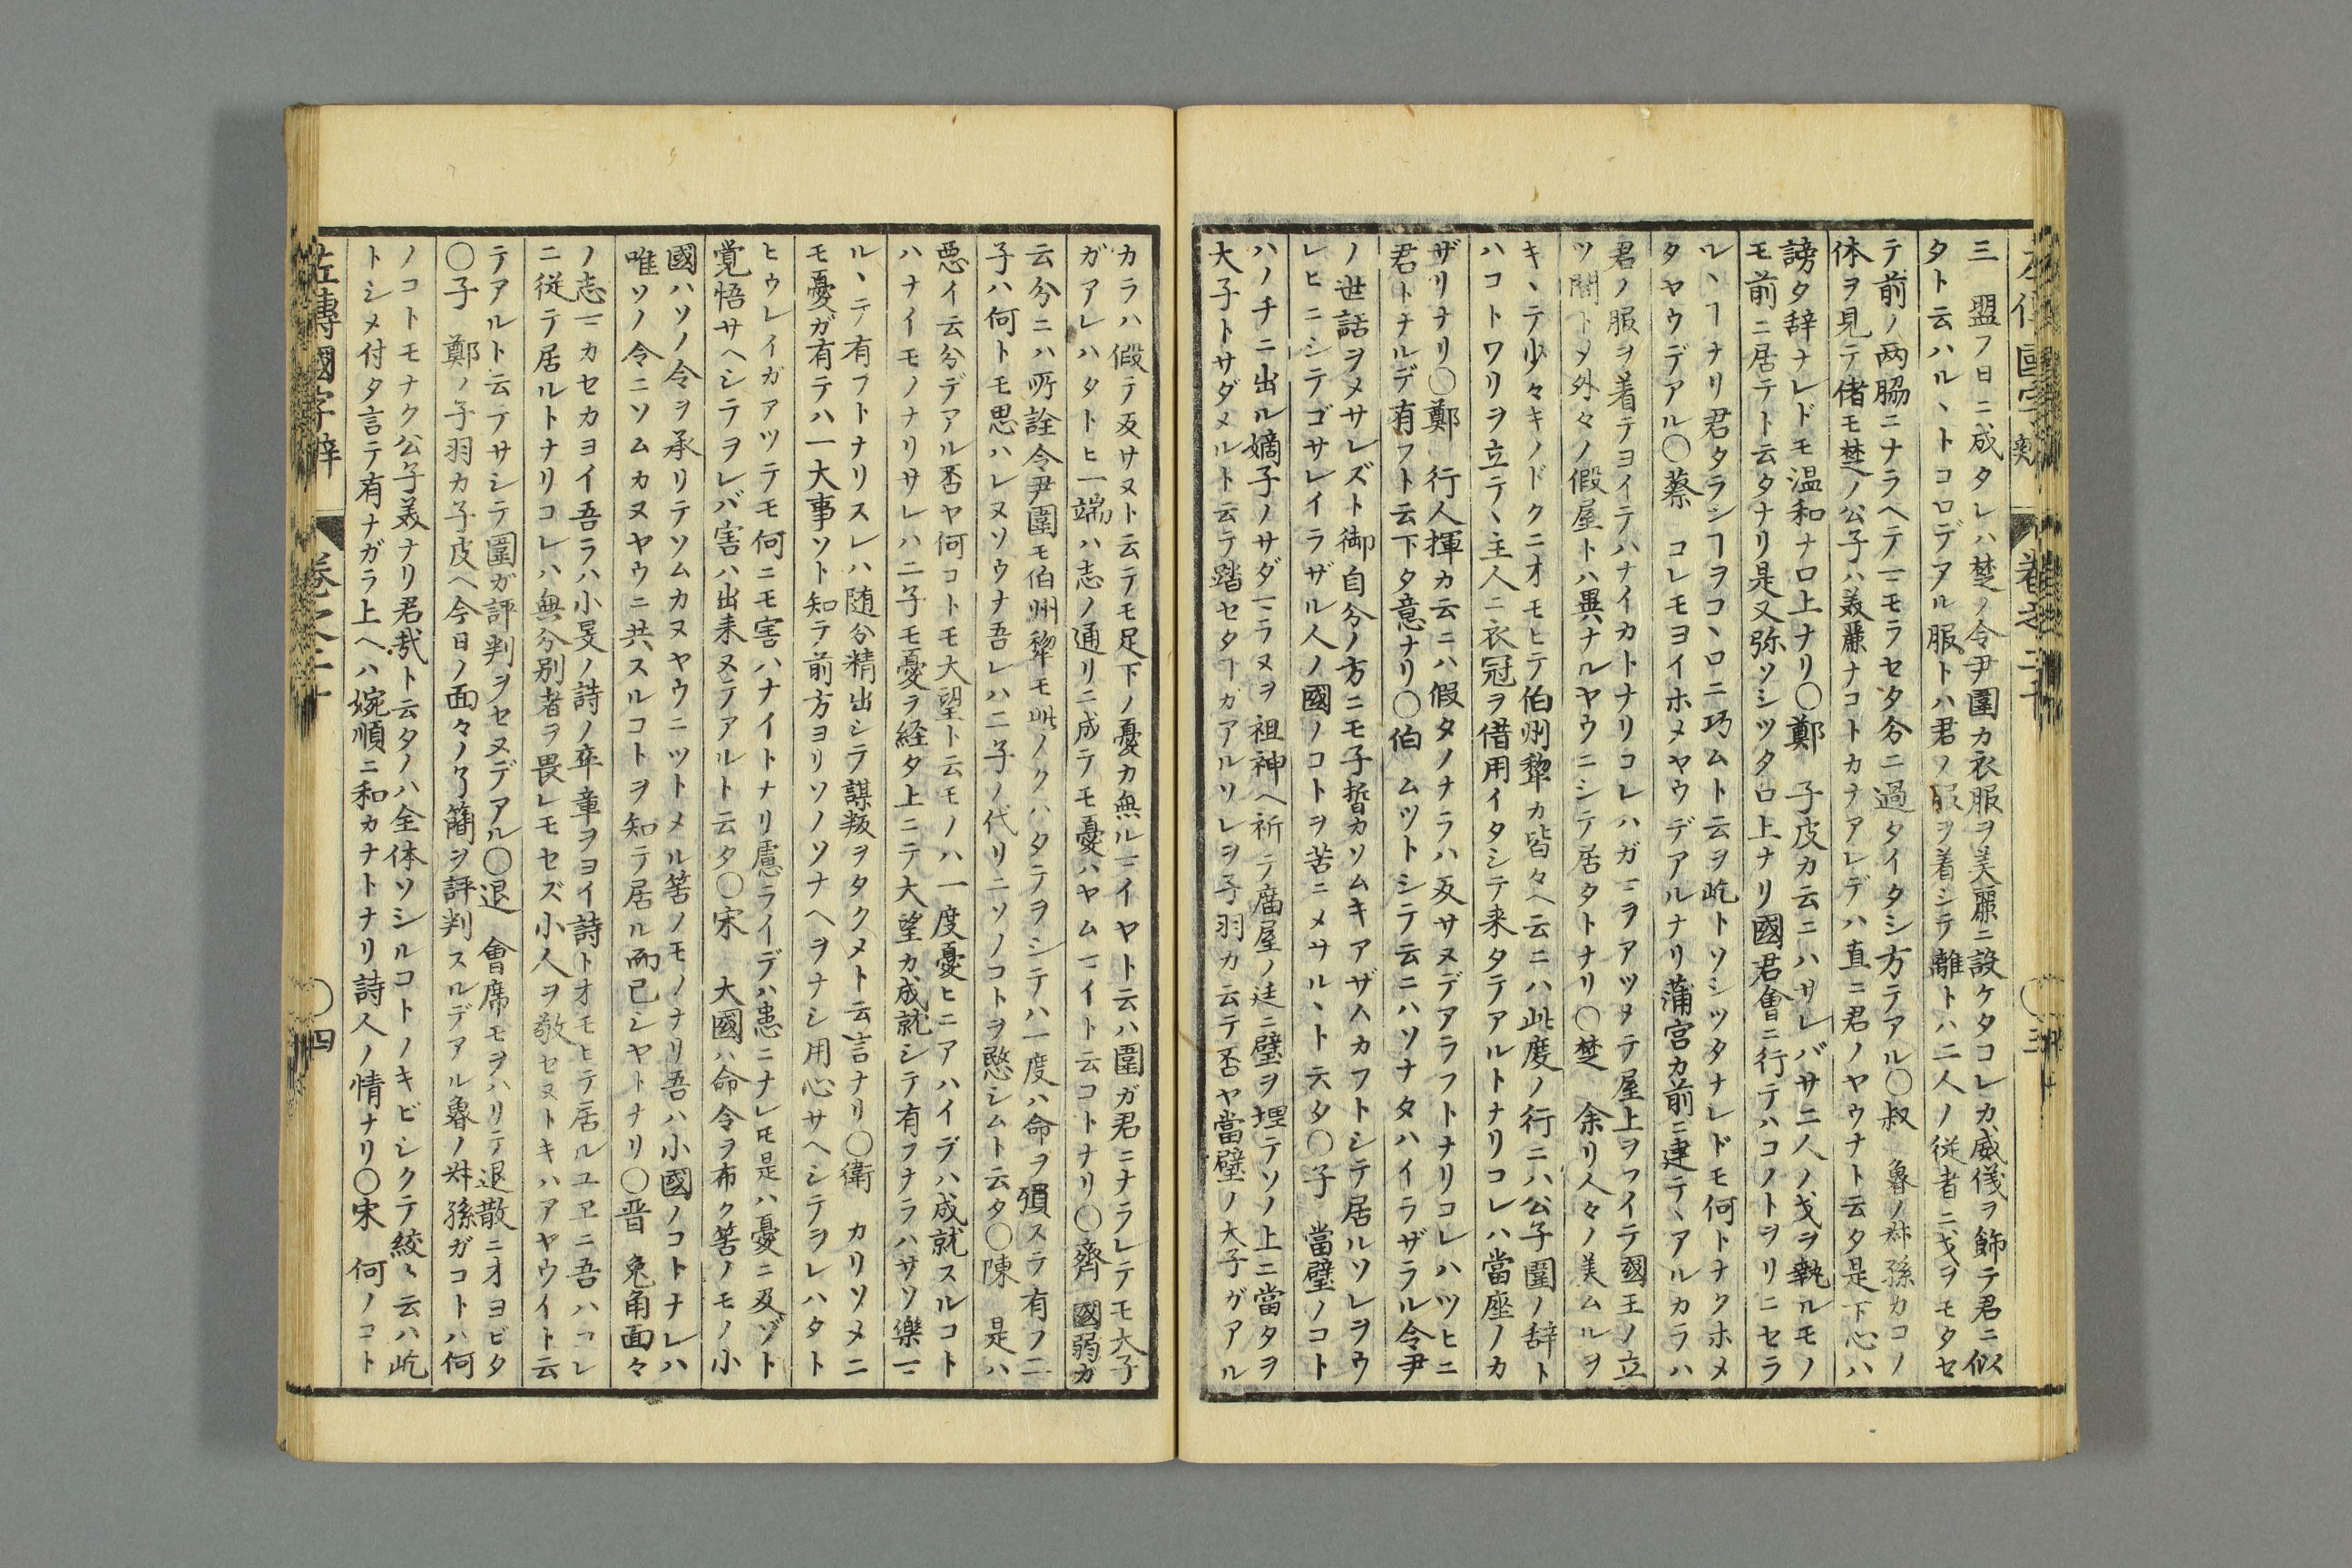 三　盟フ日ニ成タレハ楚ノ令尹圍カ衣服ヲ美麗ニ設ケタコレカ威儀ヲ飾テ君ニ似
タト云ハル丶トコロデアル服トハ君ノ服ヲ着シテ離トハ二人ノ従者ニ戈ヲモタセ
テ前ノ両脇ニナラヘテヿモラセタ分ニ過タイタシ方テアル〇叔　魯ノ叔孫カコノ
体ヲ見テ偖モ楚ノ公子ハ美麗ナコトカナアレデハ直ニ君ノヤウナト云タ是下心ハ
謗タ辞ナレドモ温和ナ口上ナリ〇鄭　子皮カ云ニハサレバサ二人ノ戈ヲ執ルモノ
モ前ニ居テト云タナリ是又弥ソシツタ口上ナリ國君會ニ行テハコノトヲリニセラ
ル丶ヿナリ君タラシヿヲコ丶ロニ巧ムト云ヲ此トソシツタナレドモ何トナクホメ
タヤウデアル〇蔡　コレモヨイホメヤウデアルナリ蒲宮カ前ニ建テ丶アルカラハ
君ノ服ヲ着テヨイテハナイカトナリコレハガヿヲアツヲテ屋上ヲフイテ國王ノ立
ツ間トメ外々ノ假屋トハ異ナルヤウニシテ居タトナリ〇楚　余リ人々ノ美ムルヲ
キ丶テ少々キノドクニオモヒテ伯州犂カ皆々ヘ云ニハ此度ノ行ニハ公子圍ノ辞ト
ハコトワリヲ立テ丶主人ニ衣冠ヲ借用イタシテ来タテアルトナリコレハ當座ノカ
ザリナリ〇鄭　行人揮カ云ニハ假タノナラハ反サヌデアラフトナリコレハツヒニ
君トナルデ有フト云下タ意ナリ〇伯　ムツトシテ云ニハソナタハイラザラル令尹
ノ世話ヲメサレズト御自分ノ方ニモ子晳カソムキアザムカフトシテ居ルソレヲウ
レヒニシテゴサレイラザル人ノ國ノコトヲ苦ニメサル丶ト云タ〇子　當璧ノコト
ハノチニ出ル嫡子ノサダヿラヌヲ祖神ヘ祈テ庿屋ノ廷ニ璧ヲ埋テソノ上ニ當タヲ
大子トサダメルト云テ踏セタヿカアルソレヲ子羽カ云テ否ヤ當璧ノ大子ガアル
カラハ假テ反サヌト云テモ足下ノ憂カ無ルヿイヤト云ハ圍ガ君ニナラレテモ大子
ガアレハタトヒ一端ハ志ノ通リニ成テモ憂ハヤムヿイト云コトナリ〇齊　國弱カ
云分ニハ所詮令尹圍モ伯州犂モ此ノクハタテヲシテハ一度ハ命ヲ殞ステ有フ二
子ハ何トモ思ハレヌソウナ吾レハ二子ノ代リニソノコトヲ愍シムト云タ〇陳　是ハ
悪イ云分デアル否ヤ何コトモ大望ト云モノハ一度憂ヒニアハイデハ成就スルコト
ハナイモノナリサレハ二子モ憂ラ経タ上ニテ大望カ成就シテ有フナラハサソ樂ヿ
ル丶テ有フトナリスレハ随分精出シテ謀叛ヲタクメト云言ナリ〇衛　カリソメニ
モ憂ガ有テハ一大事ソト知テ前方ヨリソノソナヘヲナシ用心サヘシテヲレハタト
ヒウレイガアツテモ何ニモ害ハナイトナリ慮ライデハ恚ニナレ𪜈是ハ憂ニ及ゾト
覚悟サヘシテヲレバ害ハ出来ヌテアルト云タ〇宋　大國ハ命令ヲ布ク筈ノモノ小
國ハソノ令ヲ承リテソムカヌヤウニツトメル筈ノモノナリ吾ハ小國ノコトナレハ
唯ソノ令ニソムカヌヤウニ共スルコトヲ知テ居ル而已シヤトナリ〇晋　兔角面々
ノ志ヿカセカヨイ吾ラハ小旻ノ詩ノ卒章ヲヨイ詩トオモヒテ居ルユヱニ吾ハコレ
ニ従テ居ルトナリコレハ無分別者ヲ畏レモセズ小人ヲ敬セヌトキハアヤウイト云
テアルト云テサシテ圍ガ評判ヲセヌデアル〇退　會席モヲハリテ退散ニオヨビタ
〇子　鄭ノ子羽カ子皮ヘ今日ノ面々ノ了簡ヲ評判スルデアル魯ノ叔孫ガコトハ何
ノコトモナク公子美ナリ君哉ト云タノハ全体ソシルコトノキビシクテ絞丶云ハ此
トシメ付タ言テ有ナガラ上ヘハ婉順ニ和カナトナリ詩人ノ情ナリ〇宋　何ノコト
左傳國字辯　巻之二十　〇四